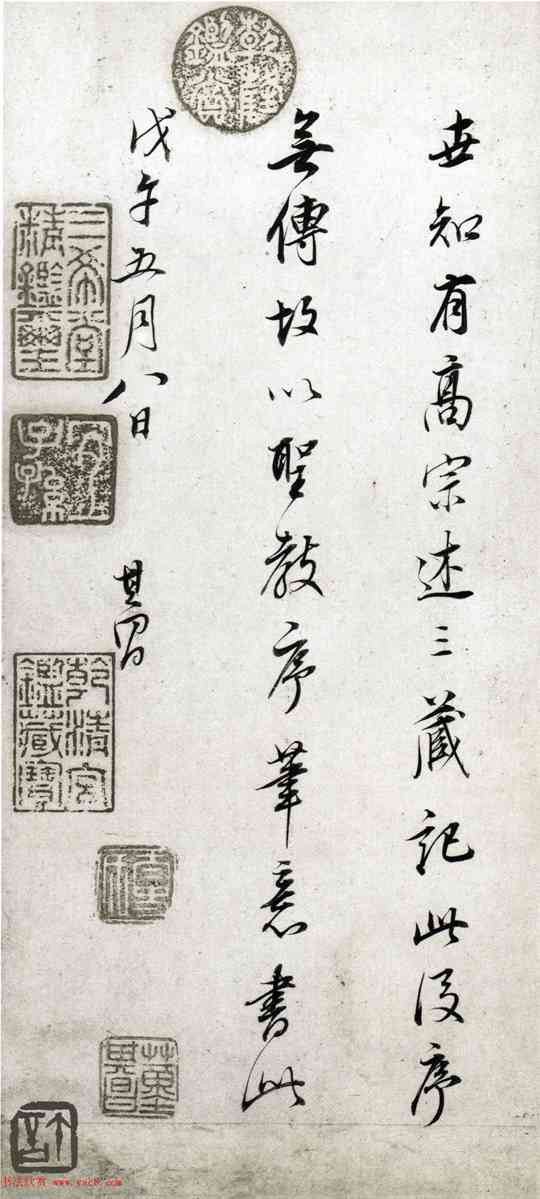 世知有高宗述三藏記此後序
無傳故以聖教序筆意書此
戊午五月八日 其昌
乾隆鑑賞
三希堂精鑑璽
宜子孫
乾清宮鑑藏寶
董其昌
书法欣赏 www.yac8.com